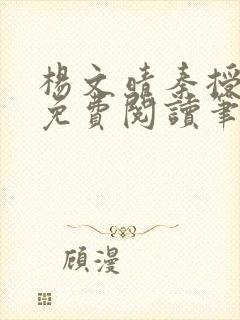 楊文晴秦授
免費閱讀筆
顧漫